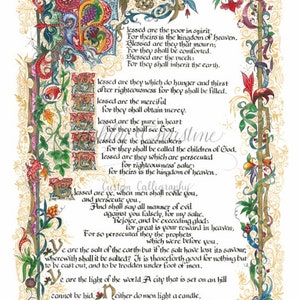 Blessed are the poor in spirit,
For theirs is the kingdom of heaven.
Blessed are they that mourn:
For they shall be comforted.
Blessed are the meek:
For they shall inherit the earth.
Blessed are they which do hunger and thirst
after righteousness for they shall be filled.
Blessed are the merciful
for they shall obtain mercy.
Blessed are the pure in heart
for they shall see God.
Blessed are the peacemakers
for they shall be called the children of God.
Blessed are they which are persecuted
for righteousness' sake:
for theirs is the kingdom of heaven.
Blessed are ye, when men shall revile you,
and persecute you,
And shall say all manner of evil
against you falsely, for my sake.
Rejoice, and be exceeding glad:
for great is your reward in heaven,
For so persecuted they the prophets,
which were before you.
Ye are the salt of the earth but if the salt have lost its savour,
wherewith shall it be salted? It is thenceforth good for nothing but
to be cast out, and to be trodden under foot of men.
Ye are the light of the world A city that is set on an hill
cannot be hid. Neither do men light a candle,